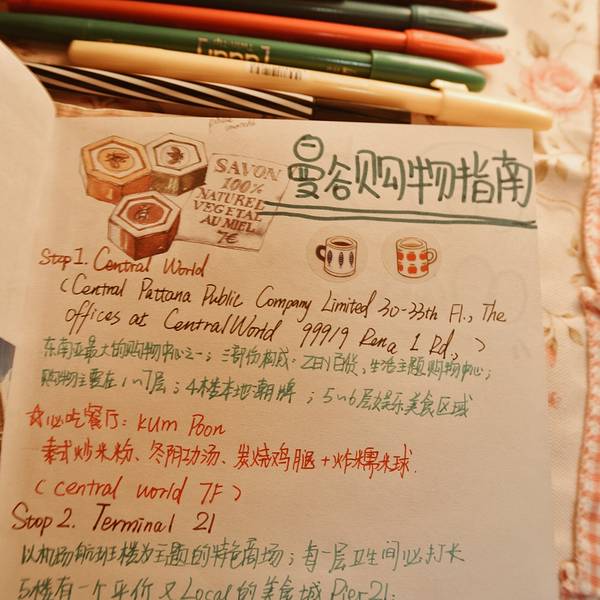 曼谷购物指南
SAVON
100%
NATUREL
VEGETAL
AU MIEL
7€
Stop 1. Central World
(Central Pattana Public Company Limited 30-33th Fl., The
offices at CentralWorld 999/9 Rama 1 Rd., )
东南亚最大的购物中心之一；三部份构成：ZEN百货、生活主题购物中心；
购物主要在1~7层；4楼本地潮牌；5~6层娱乐美食区域
☆必吃餐厅：Kum Poon
泰式炒米粉、冬阴功汤、炭烧鸡腿+炸糯米球.
(central world 7F)
Stop 2. Terminal 21
以机场航班楼为主题的特色商场；每一层卫生间必打卡
5楼有一个平价又Local的美食城 Pier21.